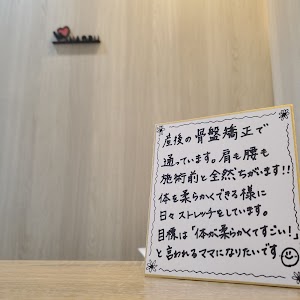 産後の骨盤矯正で
通っています。肩も腰も
施術前と全然ちがいます!!
体を柔らかくできる様に
日々ストレッチをしています。
目標は「体が柔らかくてすごい!」
と言われるママになりたいです